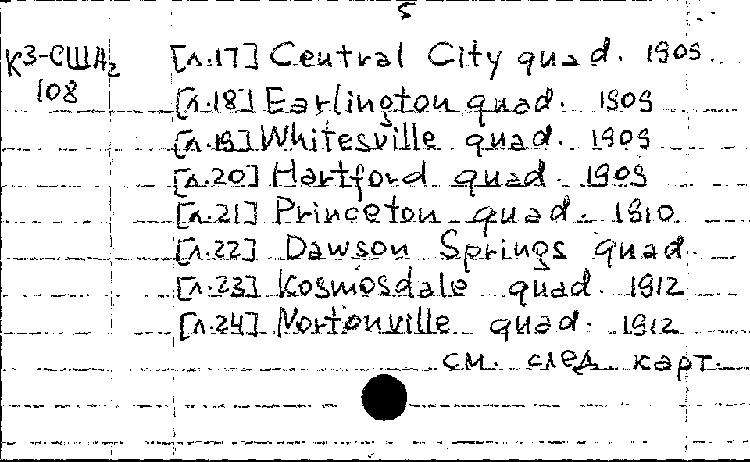 5
К3-США₂ [л.17] Central City quad. 1909.
108
[л.18] Earlington quad. 1909
[л.19] Whitesville quad. 1909
[л.20] Hartford quad. 1909
[л.21] Princeton quad. 1910.
[л.22] Dawson Springs quad.
[л.23] Kosmosdale quad. 1912
[л.24] Nortonville quad. 1912
см. след. карт.